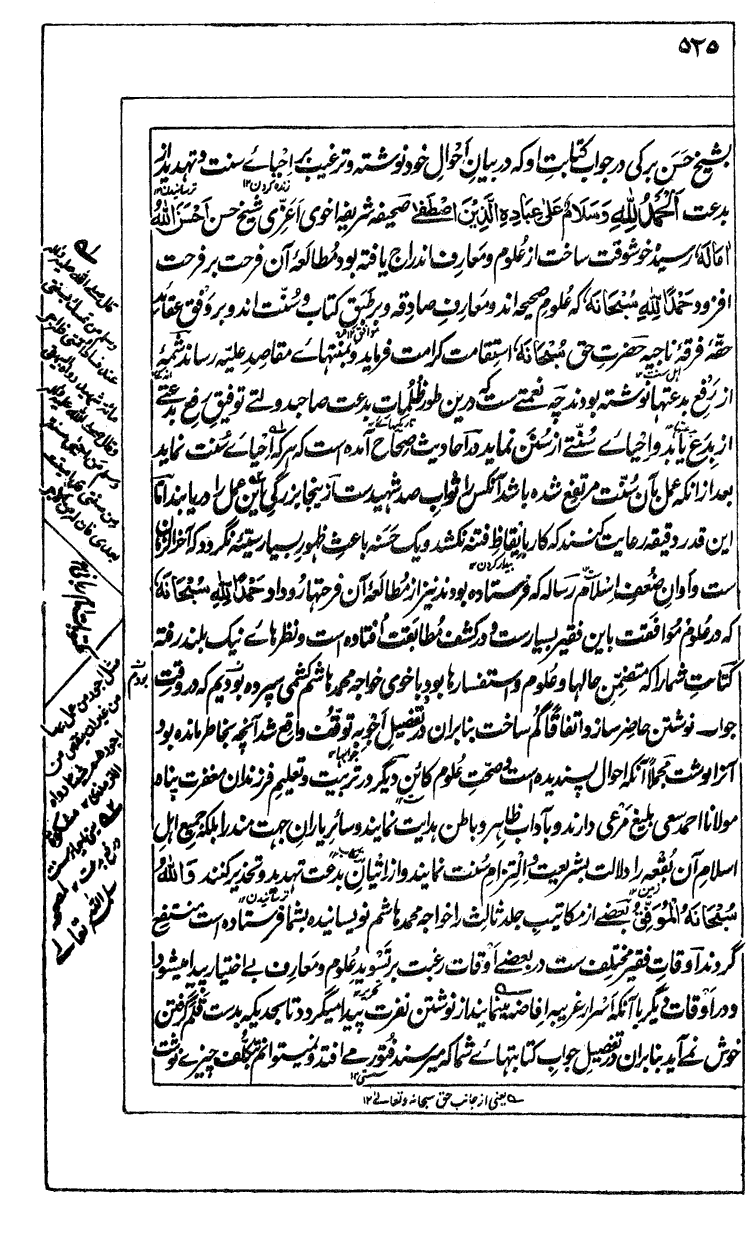 ۵۲۵
بشیخ حسن برکی در جواب کتابت او که در بیان احوال خود نوشته و ترغیب بر احیائے سنت و تهدید از
بدعت اَلْحَمْدُ لِلّٰهِ وَسَلَامٌ عَلٰی عِبَادِهِ الَّذِیْنَ اصْطَفٰی صحیفهٔ شریفه اخوی اعزی شیخ حسن اَحْسَنَ اللّٰهُ
حَالَهُ رسید خوشوقت ساخت از علوم و معارف اندراج یافته بود مطالعهٔ آن فرحت بر فرحت
افزود حَمْدًا لِلّٰهِ سُبْحَانَهُ که علوم صحیحه اند و معارف صادقه و بر طبق کتاب و سنت اند و بر وفق عقائد
حقهٔ فرقهٔ ناجیه حضرت حق سُبْحَانَهُ استقامت کرامت فرماید و بمنتهائے مقاصد علیّه رساند شمهٔ
از رفع بدعتها نوشته بودند چه نعمتے ست که درین طور ظلمات بدعت صاحب دولتے توفیق رفع بدعتے
از بدع یابد و احیائے سنتے از سنن نماید در احادیث صحاح آمده است که هر که احیائے سنت نماید
بعد از آنکه عمل بآن سنت مرتفع شده باشد آنکس را ثواب صد شهیدست از ینجا بزرگی این عمل را دریابند اما
این قدر دقیقه رعایت کنند که کار بایقاظ فتنه نکشد و یک حسنه باعث ظهور بسیار سیئه نگردد که آخر الزمان
ست و اوان ضعف اسلام رساله که فرستاده بودند نیز از مطالعهٔ آن فرحتها رو داد حَمْدًا لِلّٰهِ سُبْحَانَهُ
که در علوم موافقت باین فقیر بسیارست و در کشف مطابقت افتاده است و نظرهائے نیک بلند رفته
کتابت شما را که متضمن حالها و علوم و استفسارها بود باخوی خواجه محمد هاشم کشمی سپرده بودیم که در وقت
جواب نوشتن حاضر سازد اتفاقًا گم ساخت بنا بران در تفصیل اجوبه توقف واقع شد آنچه بخاطر مانده بود
آنرا نوشت مجملاً آنکه احوال پسندیده است و صحت علوم کائن دیگر در تربیت و تعلیم فرزندان مغفرت پناه
مولانا احمد سعی بلیغ مرعی دارند و بآداب ظاهر و باطن هدایت نمایند و سائر یاران جهت مند را بلکه جمیع اهل
اسلام آن بقعه را دلالت بشریعت و التزام سنت نمایند و از اتیان بدعت تهدید و تحذیر کنند وَاللّٰهُ
سُبْحَانَهُ الْمُوَفِّقُ بعضے از مکاتیب جلد ثالث را خواجه محمد هاشم نویسانیده بشما فرستاده است منتفع
گردند اوقات فقیر مختلف ست در بعضے اوقات رغبت بر تسوید علوم و معارف بے اختیار پیدا میشود
و در اوقات دیگر با آنکه اسرار غریبه افاضه مینمایند از نوشتن نفرت پیدا میگردد تا بحدیکه بدست قلم گرفتن
خوش نمے آید بنا بران در تفصیل جواب کتابتهائے شما که میرسند فتور مے افتد و نمیتوانم بتکلف چیزے نوشت
یعنی از جانب حق سبحانه و تعالےٰ ۱۲